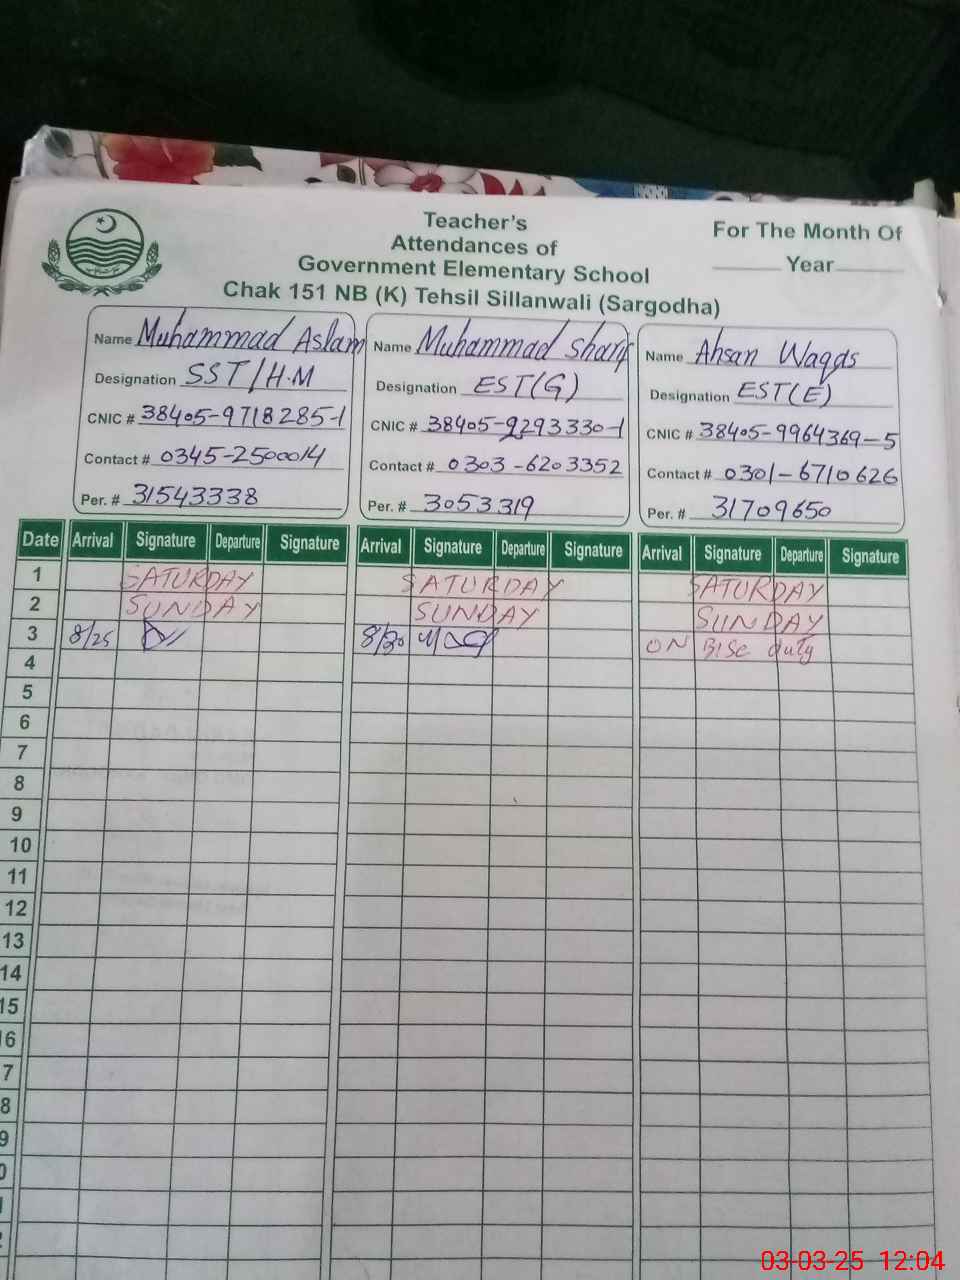 Teacher's
Attendances of
Government Elementary School
Chak 151 NB (K) Tehsil Sillanwali (Sargodha)
For The Month Of
Year
Name Muhammad Aslam
Designation SST/H.M
CNIC # 38405-9718285-1
Contact # 0345-2500014
Per. # 31543338
Name Muhammad Sharif
Designation EST(G)
CNIC # 38405-9293330-1
Contact # 0303-6203352
Per. # 3053319
Name Ahsan Waqas
Designation EST(E)
CNIC # 38405-9964369-5
Contact # 0301-6710626
Per. # 31709650
Date Arrival Signature Departure Signature Arrival Signature Departure Signature Arrival Signature Departure Signature
1 SATURDAY SATURDAY SATURDAY
2 SUNDAY SUNDAY SUNDAY
3 8/25 8/30 ON BISE duty
4
5
6
7
8
9
10
11
12
13
14
15
6
7
8
9
0
03-03-25 12:04